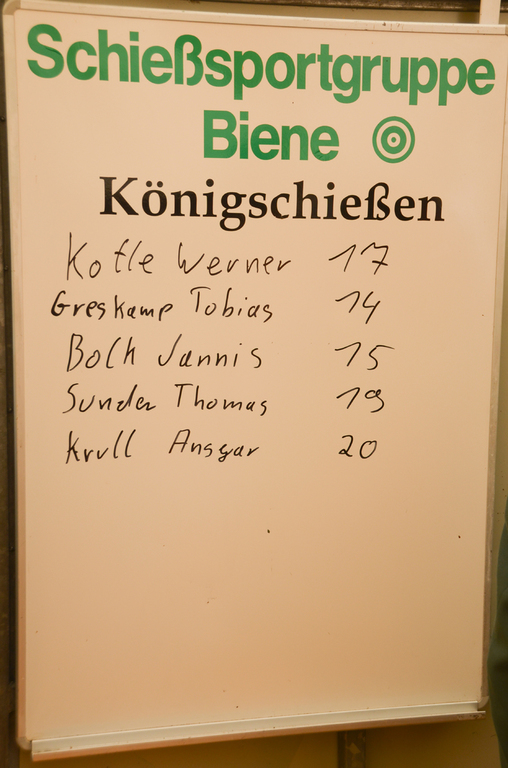 Schießsportgruppe
Biene
Königschießen
Kotte Werner 17
Greskamp Tobias 14
Bolk Jannis 15
Sunder Thomas 19
Krull Ansgar 20